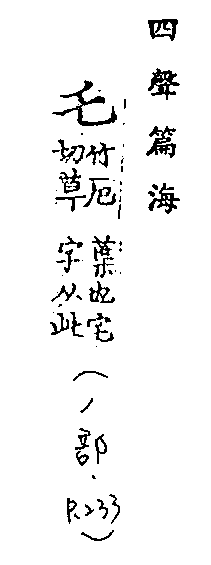 四聲篇海
乇竹厄切草葉也宅字从此(丿部.P.233)